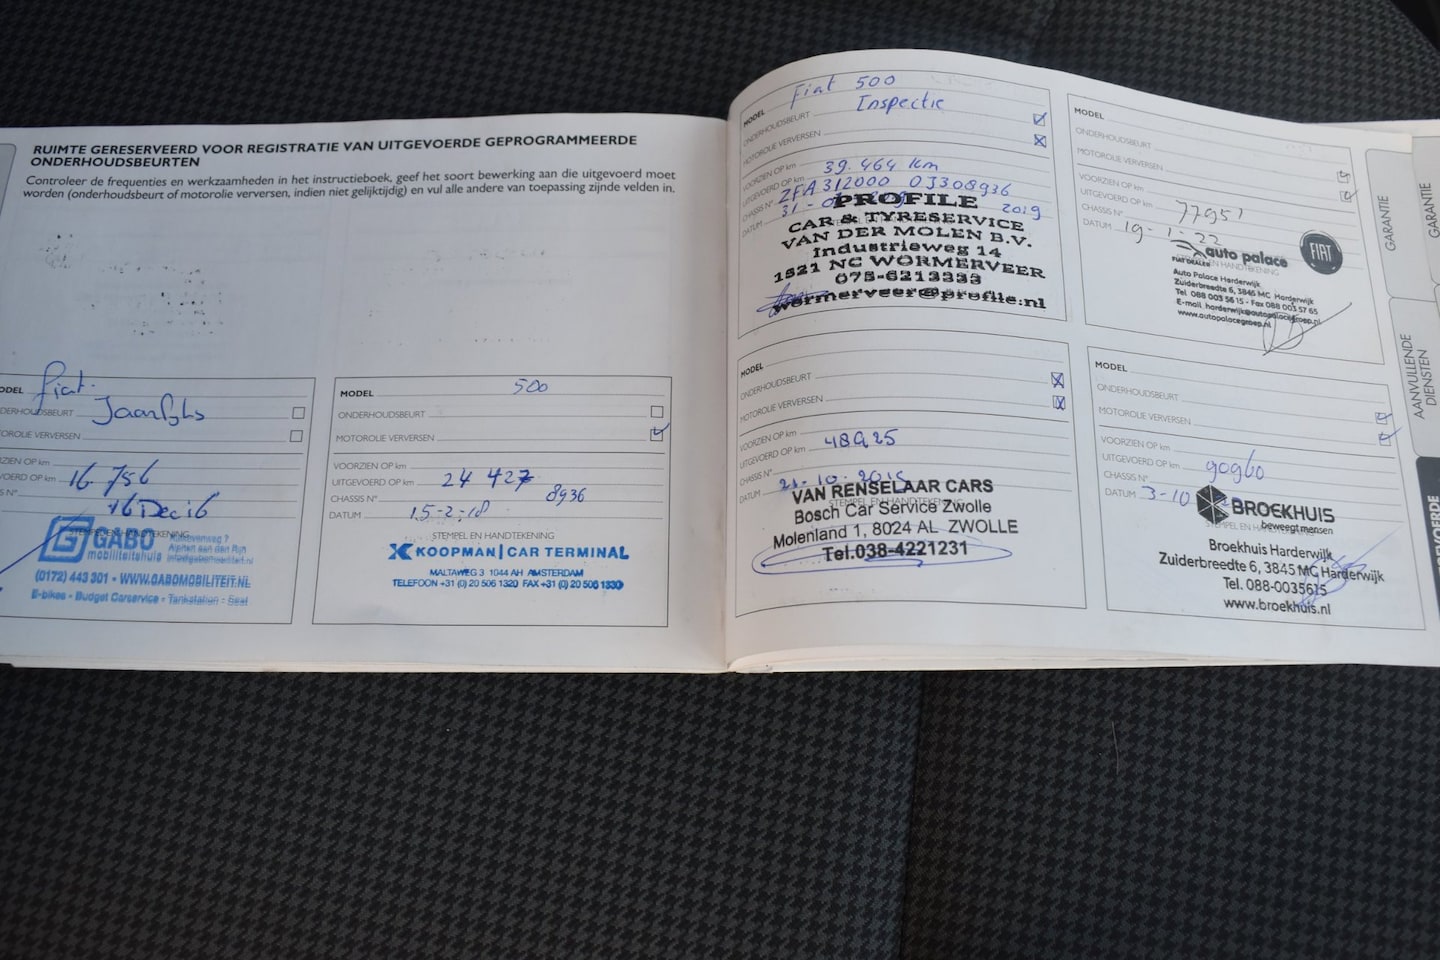 RUIMTE GERESERVEERD VOOR REGISTRATIE VAN UITGEVOERDE GEPROGRAMMEERDE
ONDERHOUDSBEURTEN
Controleer de frequenties en werkzaamheden in het instructieboek, geef het soort bewerking aan die uitgevoerd moet
worden (onderhoudsbeurt of motorolie verversen, indien niet gelijktijdig) en vul alle andere van toepassing zijnde velden in.
ODEL Fiat
DERHOUDSBEURT
OROLIE VERVERSEN
ZIEN OP km
VOERD OP km 16 756
S N°
16 Dec 16
STEMPEL EN HANDTEKENING
GABO
mobiliteitshuis
(0172) 443 301 - WWW.GABOMOBILITEIT.NL
E-bikes - Budget Carservice - Tankstation - Seat
MODEL 500
ONDERHOUDSBEURT
MOTOROLIE VERVERSEN
VOORZIEN OP km
UITGEVOERD OP km 24 427
CHASSIS N° 8936
DATUM 15-2-18
STEMPEL EN HANDTEKENING
KOOPMAN | CAR TERMINAL
MALTAWEG 3 1044 AH AMSTERDAM
TELEFOON +31 (0) 20 506 1320 FAX +31 (0) 20 506 1330
MODEL Fiat 500
ONDERHOUDSBEURT Inspectie
MOTOROLIE VERVERSEN
VOORZIEN OP km
UITGEVOERD OP km 39.464 km
CHASSIS N° ZFA312000 0J308936
DATUM 31 2019
PROFILE
CAR & TYRESERVICE
VAN DER MOLEN B.V.
Industrieweg 14
1521 NC WORMERVEER
075-6213333
wormerveer@profile.nl
MODEL
ONDERHOUDSBEURT
MOTOROLIE VERVERSEN
VOORZIEN OP km
UITGEVOERD OP km 77951
CHASSIS N°
DATUM 19-1-22
STEMPEL EN HANDTEKENING
auto palace
FIAT DEALER
FIAT
Auto Palace Harderwijk
Zuiderbreedte 6, 3845 MC Harderwijk
Tel 088 003 56 15 - Fax 088 003 57 65
E-mail harderwijk@autopalacegroep.nl
www.autopalacegroep.nl
MODEL
ONDERHOUDSBEURT
MOTOROLIE VERVERSEN
VOORZIEN OP km
UITGEVOERD OP km
CHASSIS N°
DATUM
STEMPEL EN HANDTEKENING
VAN RENSELAAR CARS
Bosch Car Service Zwolle
Molenland 1, 8024 AL ZWOLLE
Tel.038-4221231
MODEL
ONDERHOUDSBEURT
MOTOROLIE VERVERSEN
VOORZIEN OP km
UITGEVOERD OP km 90960
CHASSIS N°
DATUM 3-10
STEMPEL EN HANDTEKENING
BROEKHUIS
beweegt mensen
Broekhuis Harderwijk
Zuiderbreedte 6, 3845 MC Harderwijk
Tel. 088-0035615
www.broekhuis.nl
GARANTIE
GARANTIE
AANVULLENDE
DIENSTEN